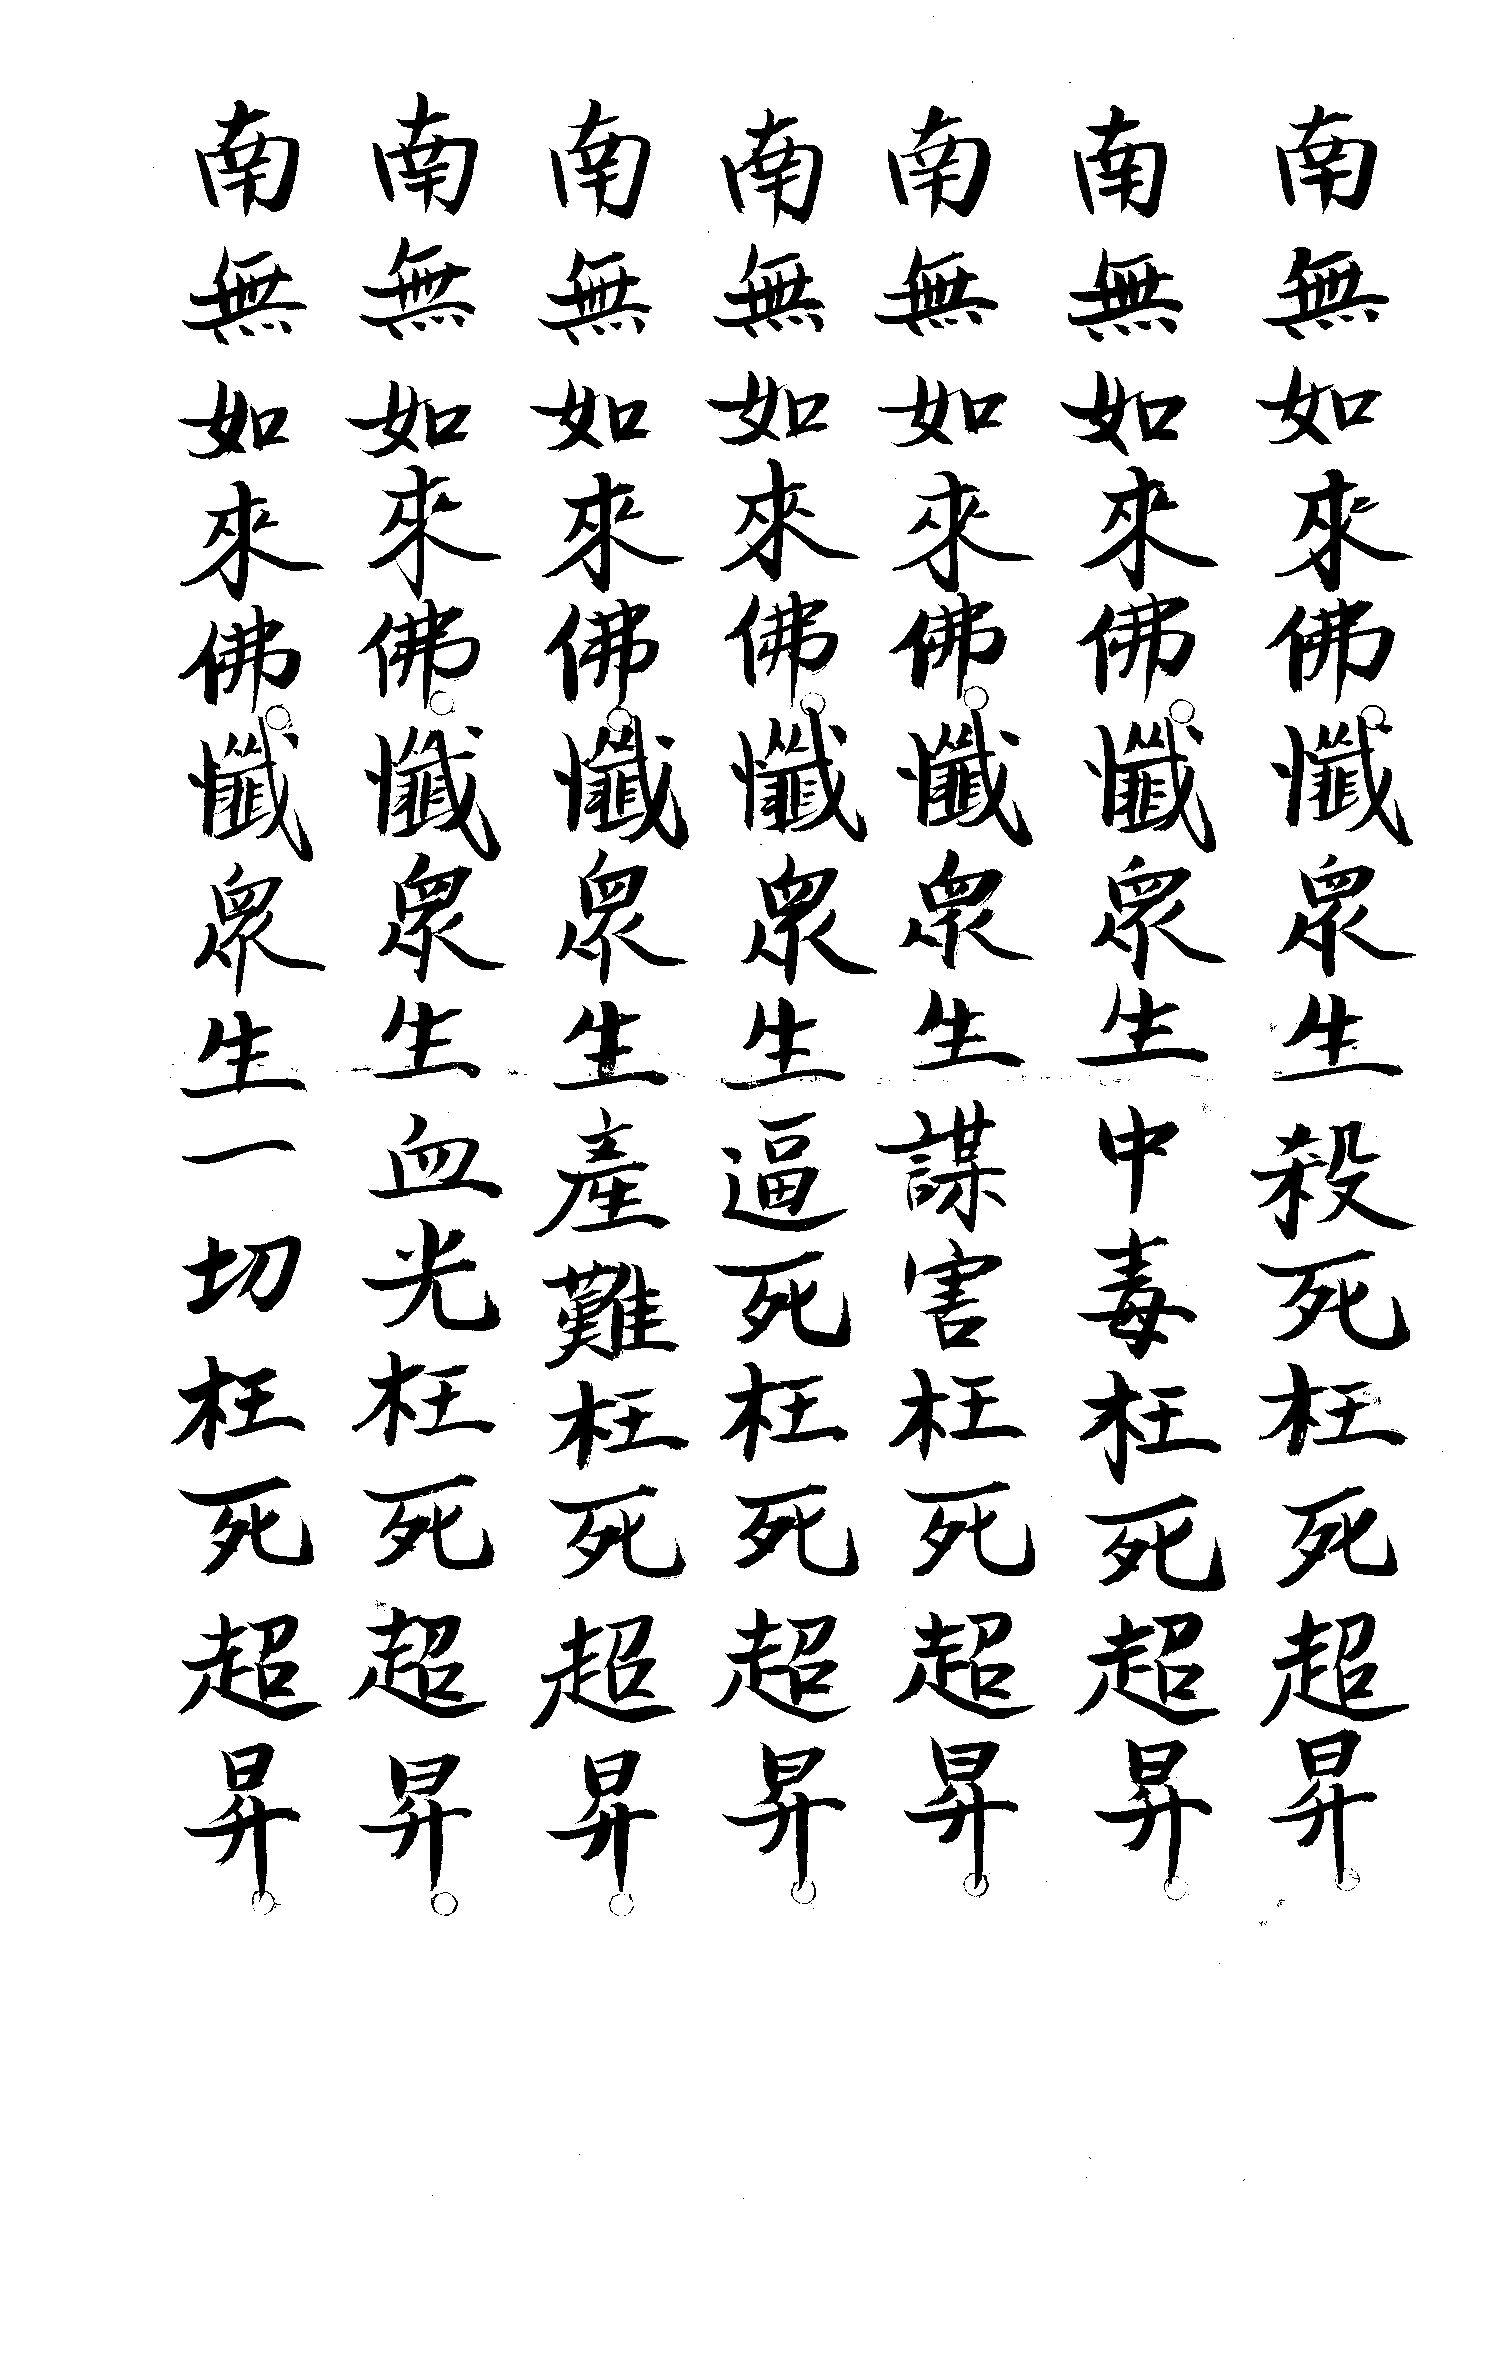 南無如來佛。懺眾生殺死枉死超昇。
南無如來佛。懺眾生中毒枉死超昇。
南無如來佛。懺眾生謀害枉死超昇。
南無如來佛。懺眾生逼死枉死超昇。
南無如來佛。懺眾生產難枉死超昇。
南無如來佛。懺眾生血光枉死超昇。
南無如來佛。懺眾生一切枉死超昇。